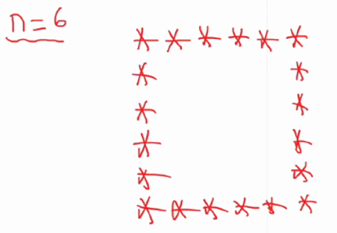 n=6
* * * * * *
* *
* *
* *
* *
* * * * * *